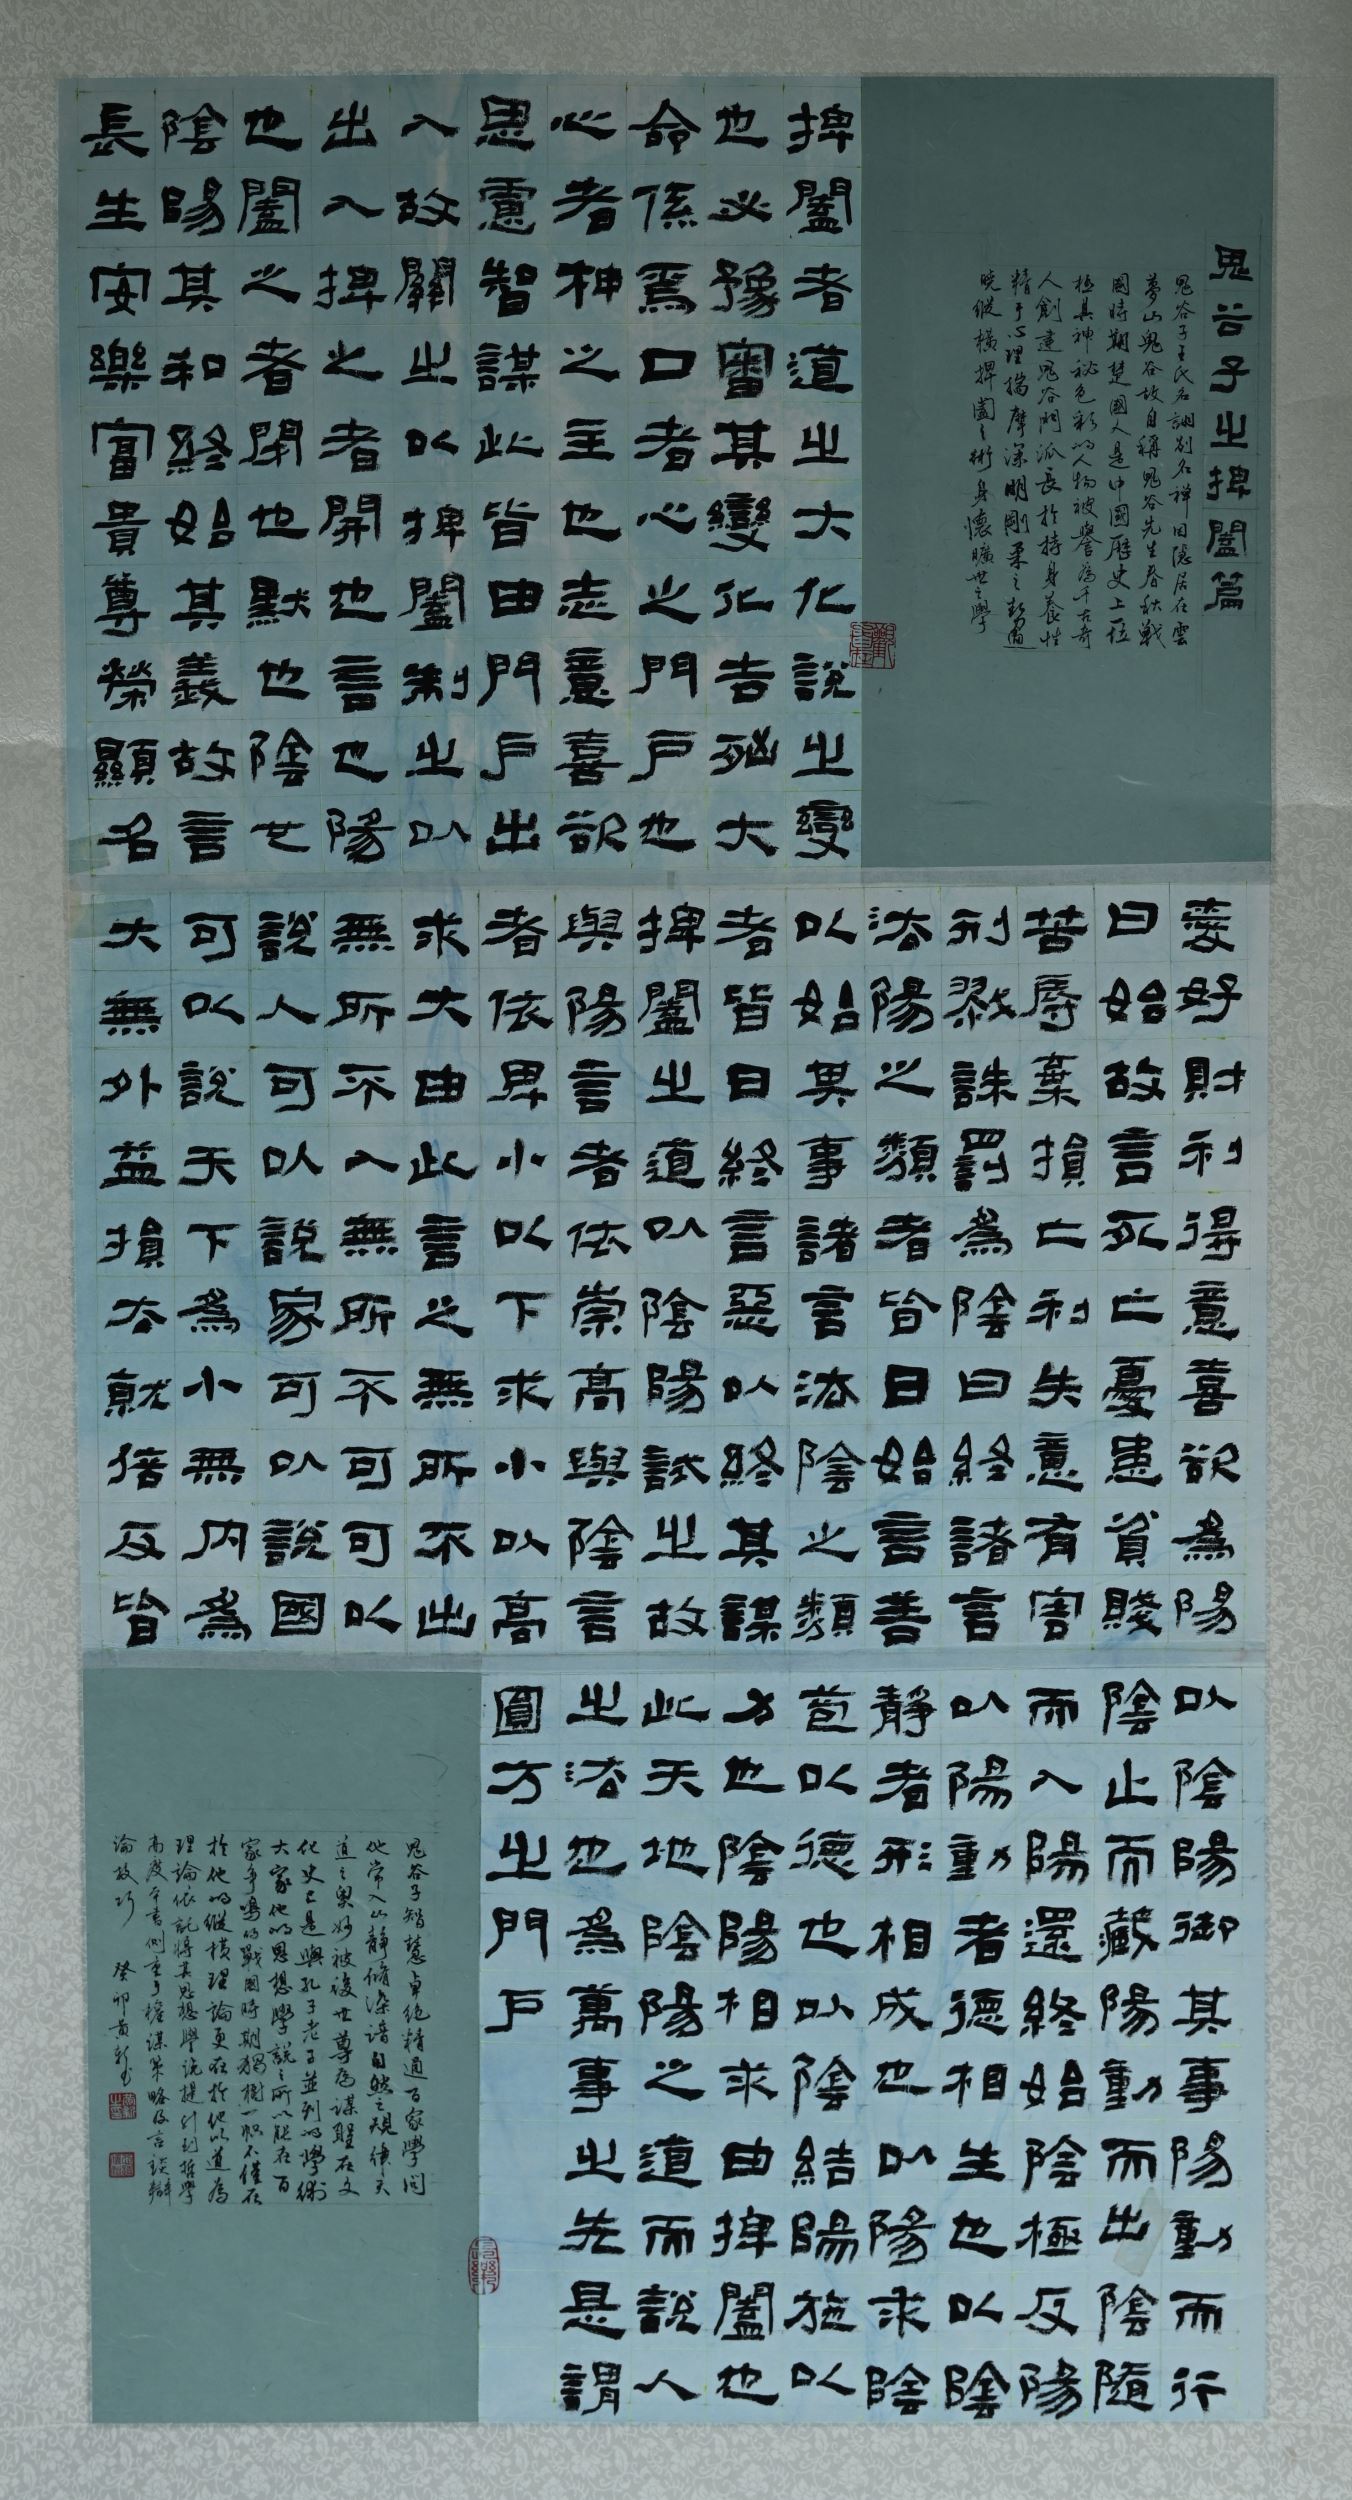 鬼谷子之捭闔篇
鬼谷子王氏名詡别名禅因隱居在雲
夢山鬼谷故自稱鬼谷先生春秋戰
國時期楚國人是中國歷史上一位
極具神秘色彩的人物被譽為千古奇
人創建鬼谷門派長於持身養性
精于心理揣摩深明剛柔之勢通
曉縱横捭闔之術身懷曠世之學
捭闔者道之大化說之變
也必豫審其變化吉凶大
命係焉口者心之門户也
心者神之主也志意喜欲
思慮智謀此皆由門户出
入故關之以捭闔制之以
出入捭之者開也言也陽
也闔之者閉也默也陰也
陰陽其和終始其義故言
長生安樂富貴尊榮顯名
愛好財利得意喜欲為陽
曰始故言死亡憂患貧賤
苦辱棄損亡利失意有害
刑戮誅罰為陰曰終諸言
法陽之類者皆曰始言善
以始其事諸言法陰之類
者皆曰終言惡以終其謀
捭闔之道以陰陽試之故
與陽言者依崇高與陰言
者依卑小以下求小以高
求大由此言之無所不出
無所不入無所不可可以
說人可以說家可以說國
可以說天下為小無內為
大無外益損去就倍反皆
以陰陽御其事陽動而行
陰止而藏陽動而出陰隨
而入陽還終始陰極反陽
以陽動者德相生也以陰
靜者形相成也以陽求陰
苞以德也以陰結陽施以
力也陰陽相求由捭闔也
此天地陰陽之道而說人
之法也為萬事之先是謂
圓方之門户
鬼谷子智慧卓绝精通百家學问
他常入山静脩深諳自然之規律天
道之奥妙被後世尊為謀聖在文
化史上是與孔子老子並列的學術
大家他的思想學說之所以能在百
家争鳴的戰國時期独樹一帜不僅在
於他的縱横理論更在於他以道為
理論依託將其思想學说提升到哲學
高度本書侧重于權謀策略及言談辯
論技巧 癸卯黄